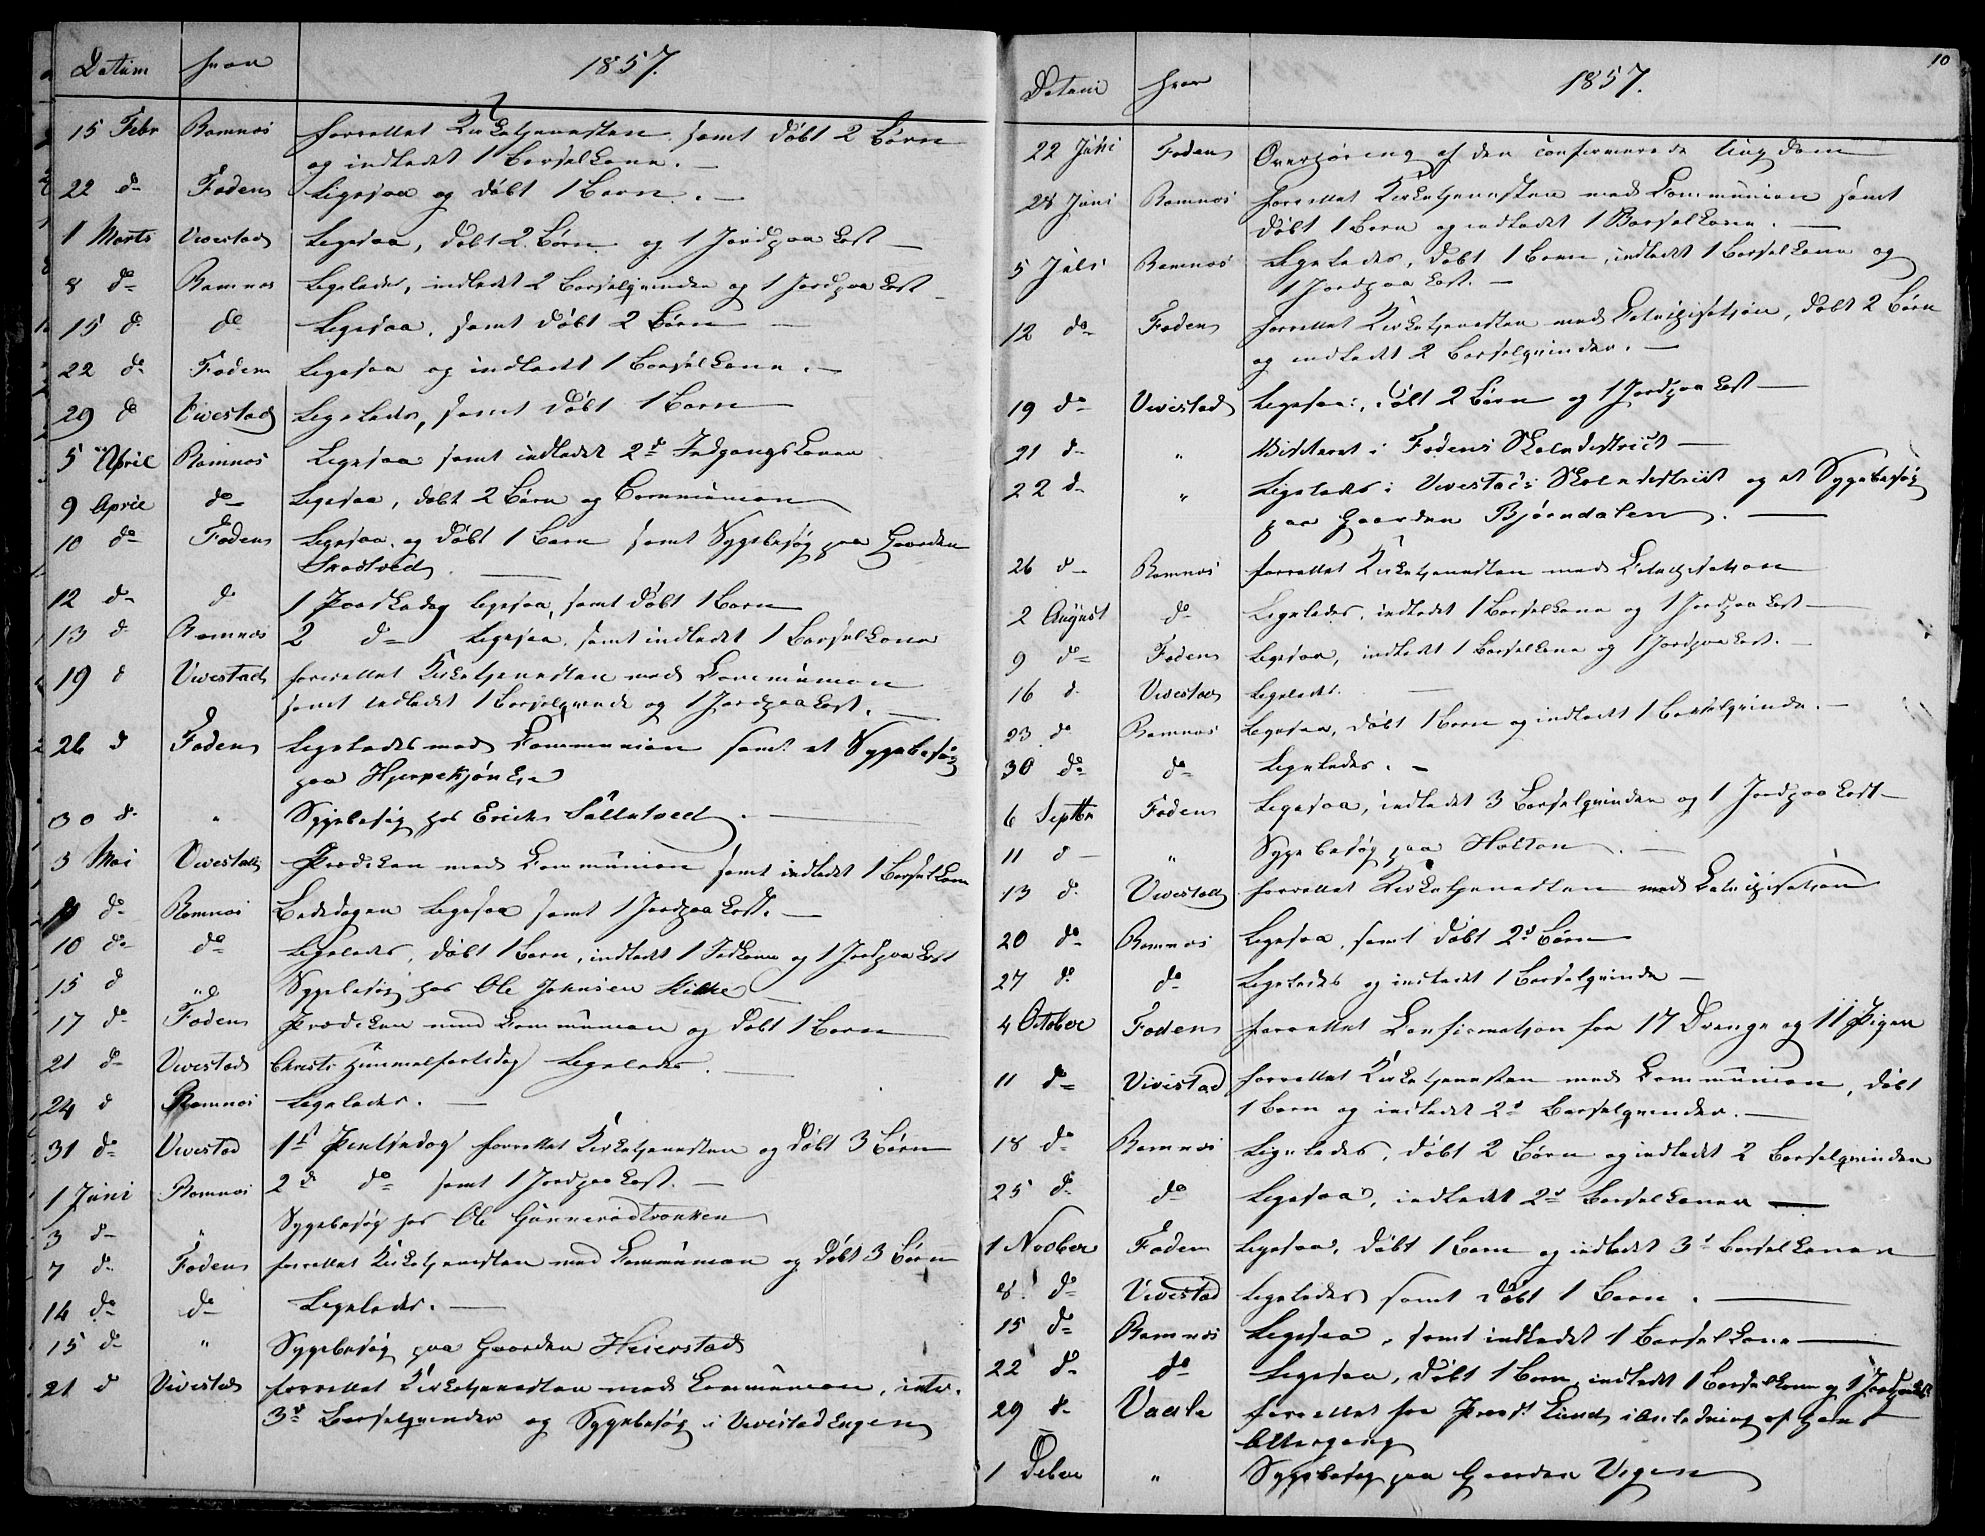 Datum hvor 1857.
15 Febr Ramnæs forrettet Kirketjenesten samt døbt 2 Børn
og indledet 1 Barselkone. —
22 do Fodens Ligesaa og døbt 1 Barn. —
1 Marts Vivestad Ligesaa, døbt 2 Børn og 1 Jordpaakast —
8 do Ramnæs Ligeledes, indledet 2 Barselqvinder og 1 Jordpaakast —
15 d do Ligesaa, samt døbt 2 Børn —
22 do Fodens Ligesaa og indledet 1 Barselkone. —
29 do Vivestad Ligeledes, samt døbt 1 Barn
5 April Ramnæs Ligesaa samt indledet 2de Indgangskoner
9 April do Ligesaa, døbt 2 Børn og Communion
10 do Fodens Ligesaa og døbt 1 Barn samt Sygebesøg paa Gaarden
12 do d 1 Paaskedag ligesaa, samt døbt 1 Barn
13 d Ramnæs 2 do Ligesaa, samt indledet 1 Barselkone
19 d Vivestad forrettet Kirketjenesten med Communion
samt indledet 1 Barselqvinde og 1 Jordpaakast. —
26 d Fodens Ligeledes med Communion samt et Sygebesøg
paa
30 d " Sygebesøg hos Erich Sulutved. —
3 Mai Vivestad Prædiken med Communion samt indledet 1 Barselkone
do Ramnæs Bededagen ligesaa samt 1 Jordpaakast. —
10 do do Ligeledes, døbt 1 Barn, indledet 1 og 1 Jordpaakast
15 d " Sygebesøg hos Ole Johnsen —
17 do Fodens Prædiken med Communion og døbt 1 Barn
21 do Vivestad Christi Himmelfartsdag Ligeledes. —
24 d Ramnæs Ligeledes. —
31 do Vivestad 1st Pintsedag forrettet Kirketjenesten og døbt 3 Børn
1 Juni Ramnæs 2d do samt 1 Jordpaakast. —
3 do " Sygebesøg hos Ole Gunnerød
7 d Fodens forrettet Kirketjenesten med Communion og døbt 3 Børn
14 do do Ligeledes. —
15 do " Sygebesøg paa Gaarden Heierstad
21 d Vivestad forrettet Kirketjenesten med Communion, intr.
3de Barselqvinder og Sygebesøg i Vivestad Engen
10
Datum hvor 1857.
22 Juni Fodens Overhøring af den confirmerede Ungdom
28 Juni Ramnæs forrettet Kirketjenesten med Communion samt
døbt 1 Barn og indledet 1 Barselkone. —
5 Juli Ramnæs Ligeledes, døbt 1 Barn, indledet 1 Barselkone og
1 Jordpaakast. —
12 do Fodens forrettet Kirketjenesten med Catechisation, døbt 2 Børn
og indledet 2 Barselqvinder. —
19 do Vivestad Ligesaa, døbt 2 Børn og 1 Jordpaakast —
21 d " Visiteret i Fodens Skoledistrict —
22 d " Ligeledes i Vivestad Skoledistrict og et Sygebesøg
paa Gaarden Bjørndalen. —
26 d Ramnæs forrettet Kirketjenesten med Catechisation
2 August do Ligeledes, indledet 1 Barselkone og 1 Jordpaakast —
9 do Fodens Ligesaa, indledet 1 Barselkone og 1 Jordpaakast. —
16 d Vivestad Ligeledes. —
23 do Ramnæs Ligesaa, døbt 1 Barn og indledet 1 Barselqvinde. —
30 do do Ligeledes. —
6 Septbr Fodens Ligesaa, indledet 3 Barselqvinder og 1 Jordpaakast —
11 d — " Sygebesøg paa Holton. —
13 d Vivestad forrettet Kirketjenesten med Catechisation
20 do Ramnæs Ligesaa, samt døbt 2de Børn
27 do do Ligeledes og indledet 1 Barselqvinde —
4 October Fodens forrettet Confirmation for 17 Drenge og 11 Piger
11 do Vivistad forrettet Kirketjenesten med Communion, døbt
1 Barn og indledet 2de Barselqvinder. —
18 do Ramnæs Ligeledes, døbt 2 Børn og indledet 2 Barselqvinder
25 d do Ligesaa, indledet 2de Barselkoner —
1 Novber Fodens Ligesaa, døbt 1 Barn og indledet 3de Barselkoner
8 do Vivestad Ligeledes samt døbt 1 Barn. —
15 do Ramnæs Ligesaa, samt indledet 1 Barselkone —
22 d do Ligesaa, døbt 1 Barn, indledet 1 Barselkone og 1 Jordpaak.
29 d Vaale forrettet for Provst Lund i Anledning af hans
Altergang
1 Decbr " Sygebesøg paa Gaarden Vegen